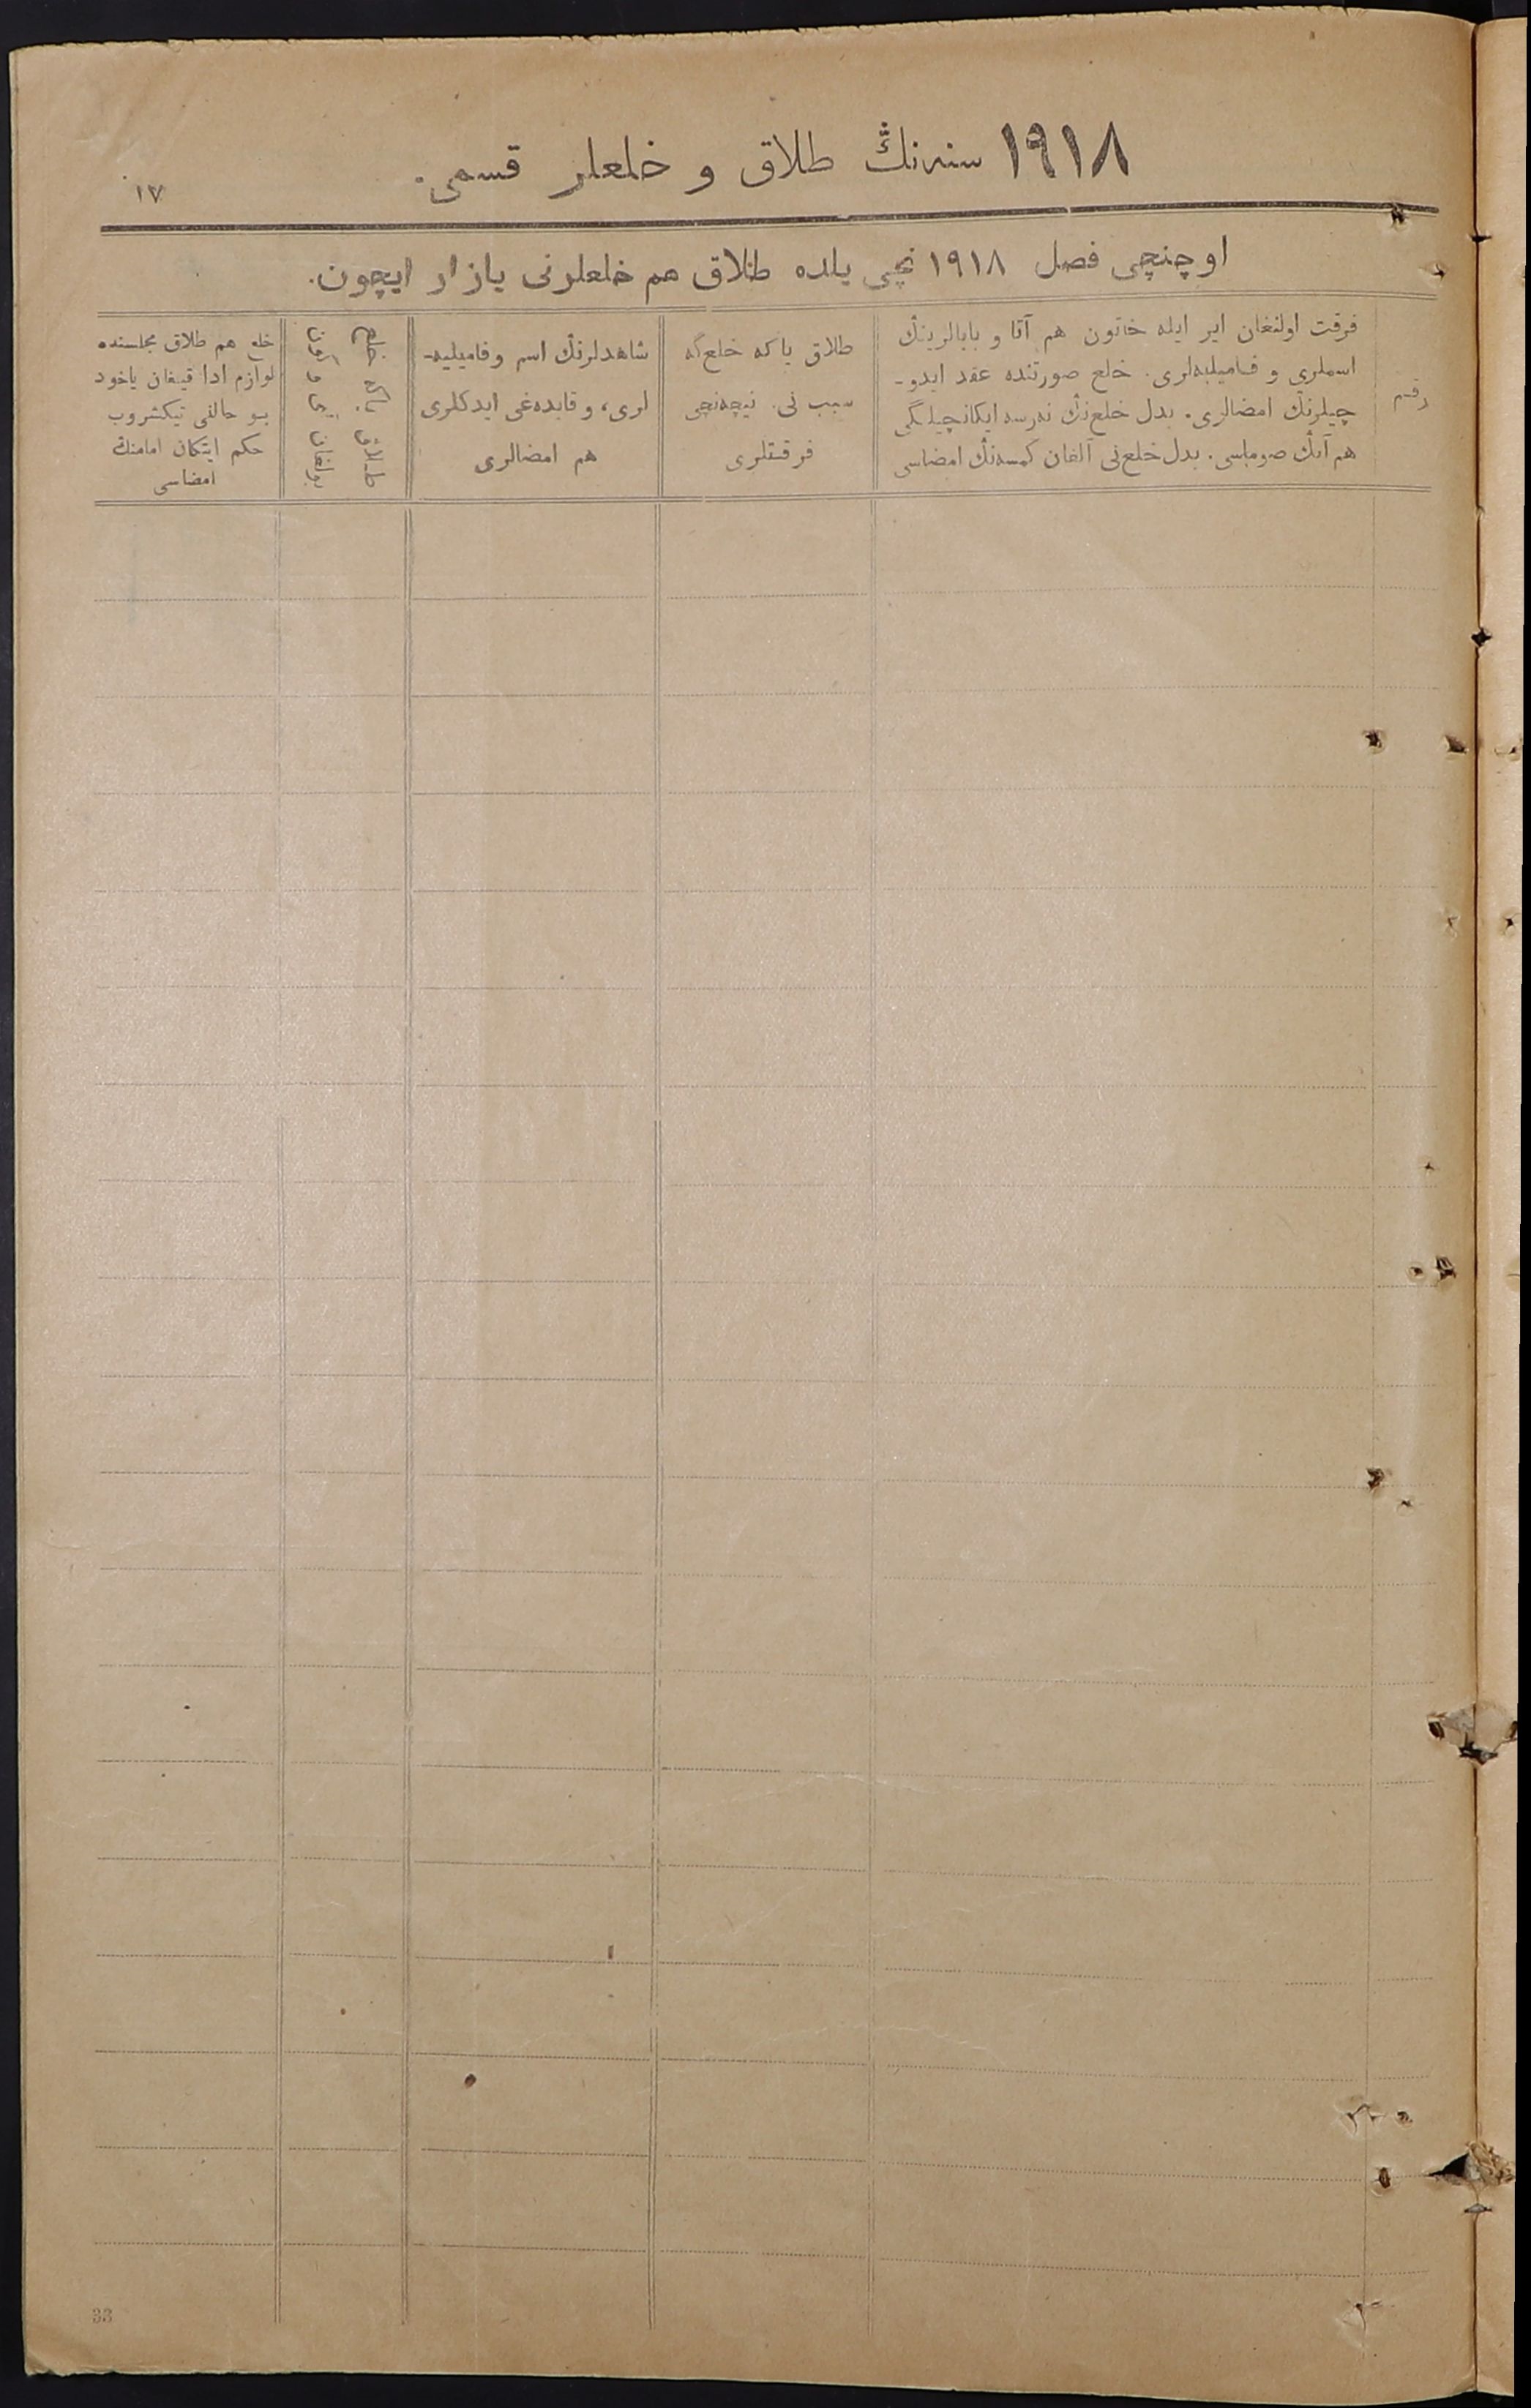 ١٩١٨ سنه‌نڭ طلاق و خلعلر قسمی.
١٧
اوچنچی فصل ١٩١٨ نچی یلده طلاق هم خلعلرنی یازار ایچون.
رقم
فرقت اولنغان ایر ایله خاتون هم آتا و بابالرینڭ
اسملری و فامیلیه‌لری. خلع صورتنده عقد ایدو-
چیلرنڭ امضالری. بدل خلع‌نڭ نه‌رسه ایکانچیلگی
هم آنڭ صوماسی. بدل خلع‌نی آلغان کمسه‌نڭ امضاسی
طلاق یا که خلع‌گه
سبب نی. نیچه‌نچی
فرقتلری
شاهدلرنڭ اسم و فامیلیه-
لری، و قایده‌غی ایدکلری
هم امضالری
طلاق یا که خلع
بولغان
خلع هم طلاق مجلسنده
لوازم ادا قیلغان یاخود
بو حالنی تیکشروب
حکم ایتکان امامنڭ
امضاسی
33